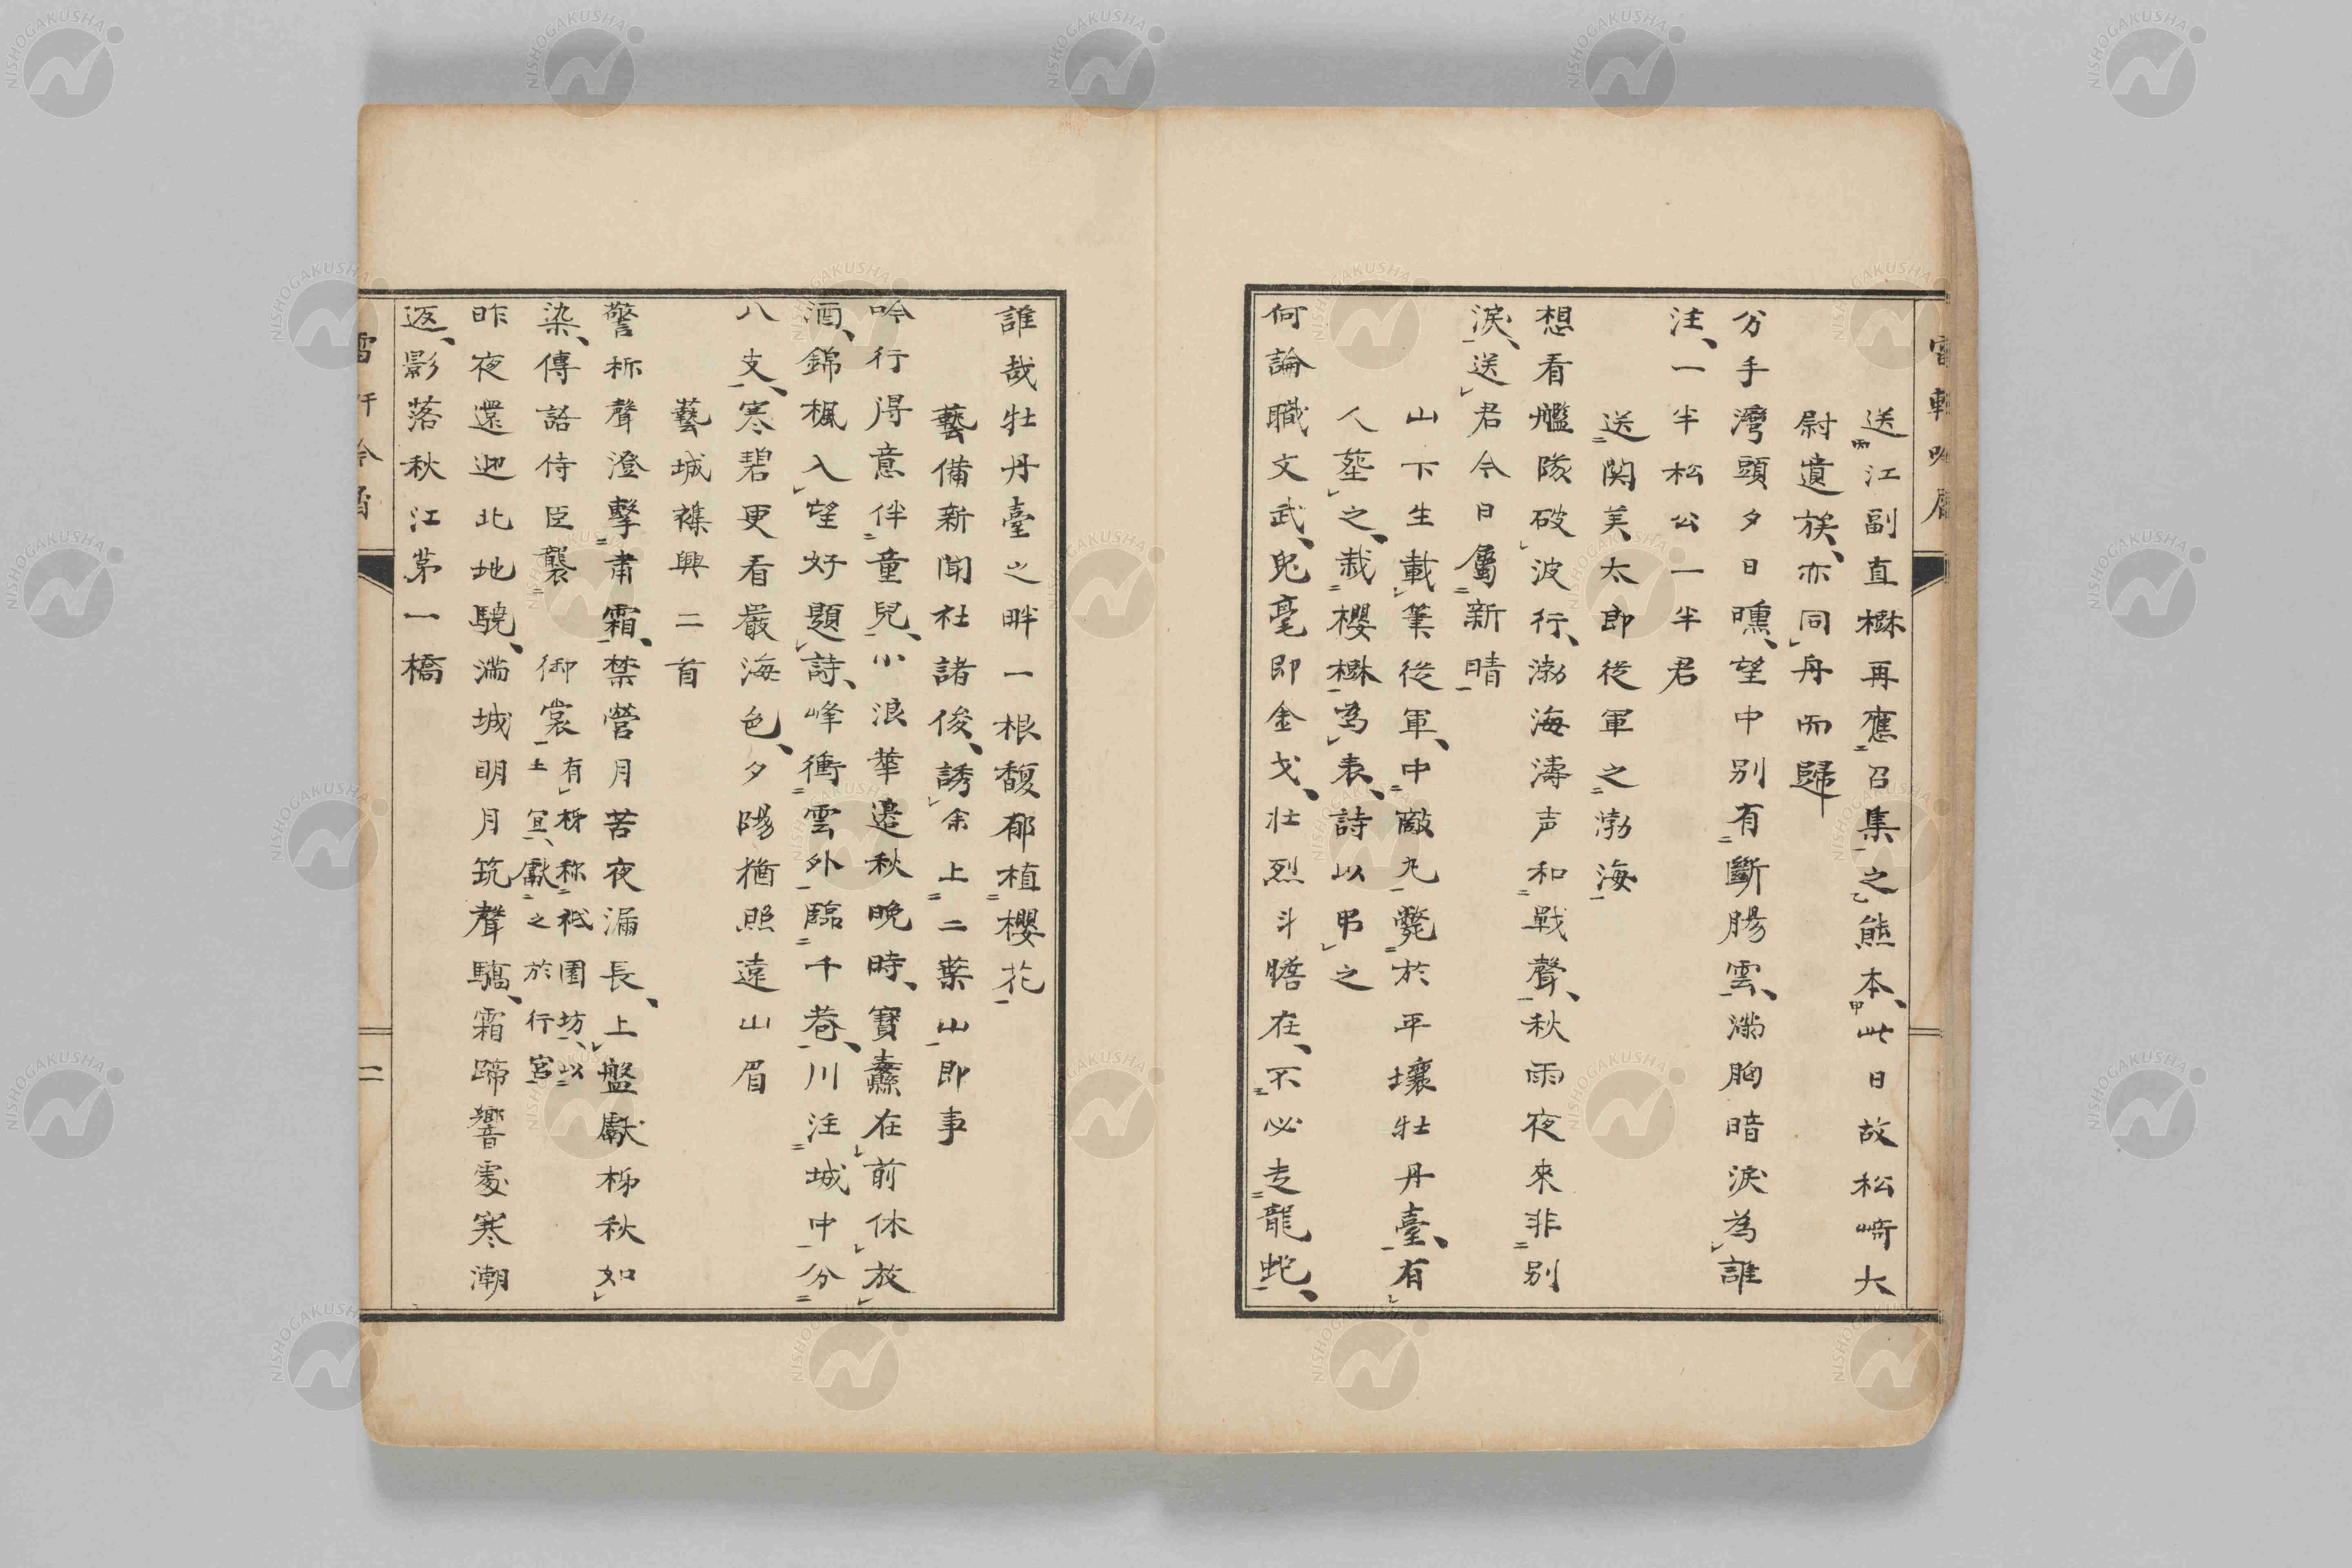 送江副直樹再應召集之熊本此日故松崎大
尉遺族亦同舟而歸
分手灣頭夕日曛望中別有斷腸雲滿胸暗淚為誰
注一半松公一半君
送関美太郎從軍之渤海
想看艦隊破波行渤海濤声和戰聲秋雨夜來非別
淚送君今日屬新晴
山下生載筆從軍中敵丸斃於平壤牡丹臺有
人塟之栽櫻樹為表詩以弔之
何論職文武兎毫即金戈壯烈斗膽在不必走龍蛇
誰哉牡丹臺之畔一根馥郁植櫻花
藝備新聞社諸俊誘余上二葉山即事
吟行得意伴童兒小浪華邊秋晚時寶纛在前休放
酒錦楓入望好題詩峰衝雲外臨千巷川注城中分
八支寒碧更看嚴海色夕陽猶照遠山眉
藝城襍興二首
警柝聲澄擊肅霜禁營月苦夜漏長上盤獻柹秋如
染傳語侍臣襲御裳有柹称祇園坊以土宜獻之於行宮
昨夜還迎北地驍滿城明月筑聲驕霜蹄響處寒潮
返影落秋江第一橋
二
NISHOGAKUSHA